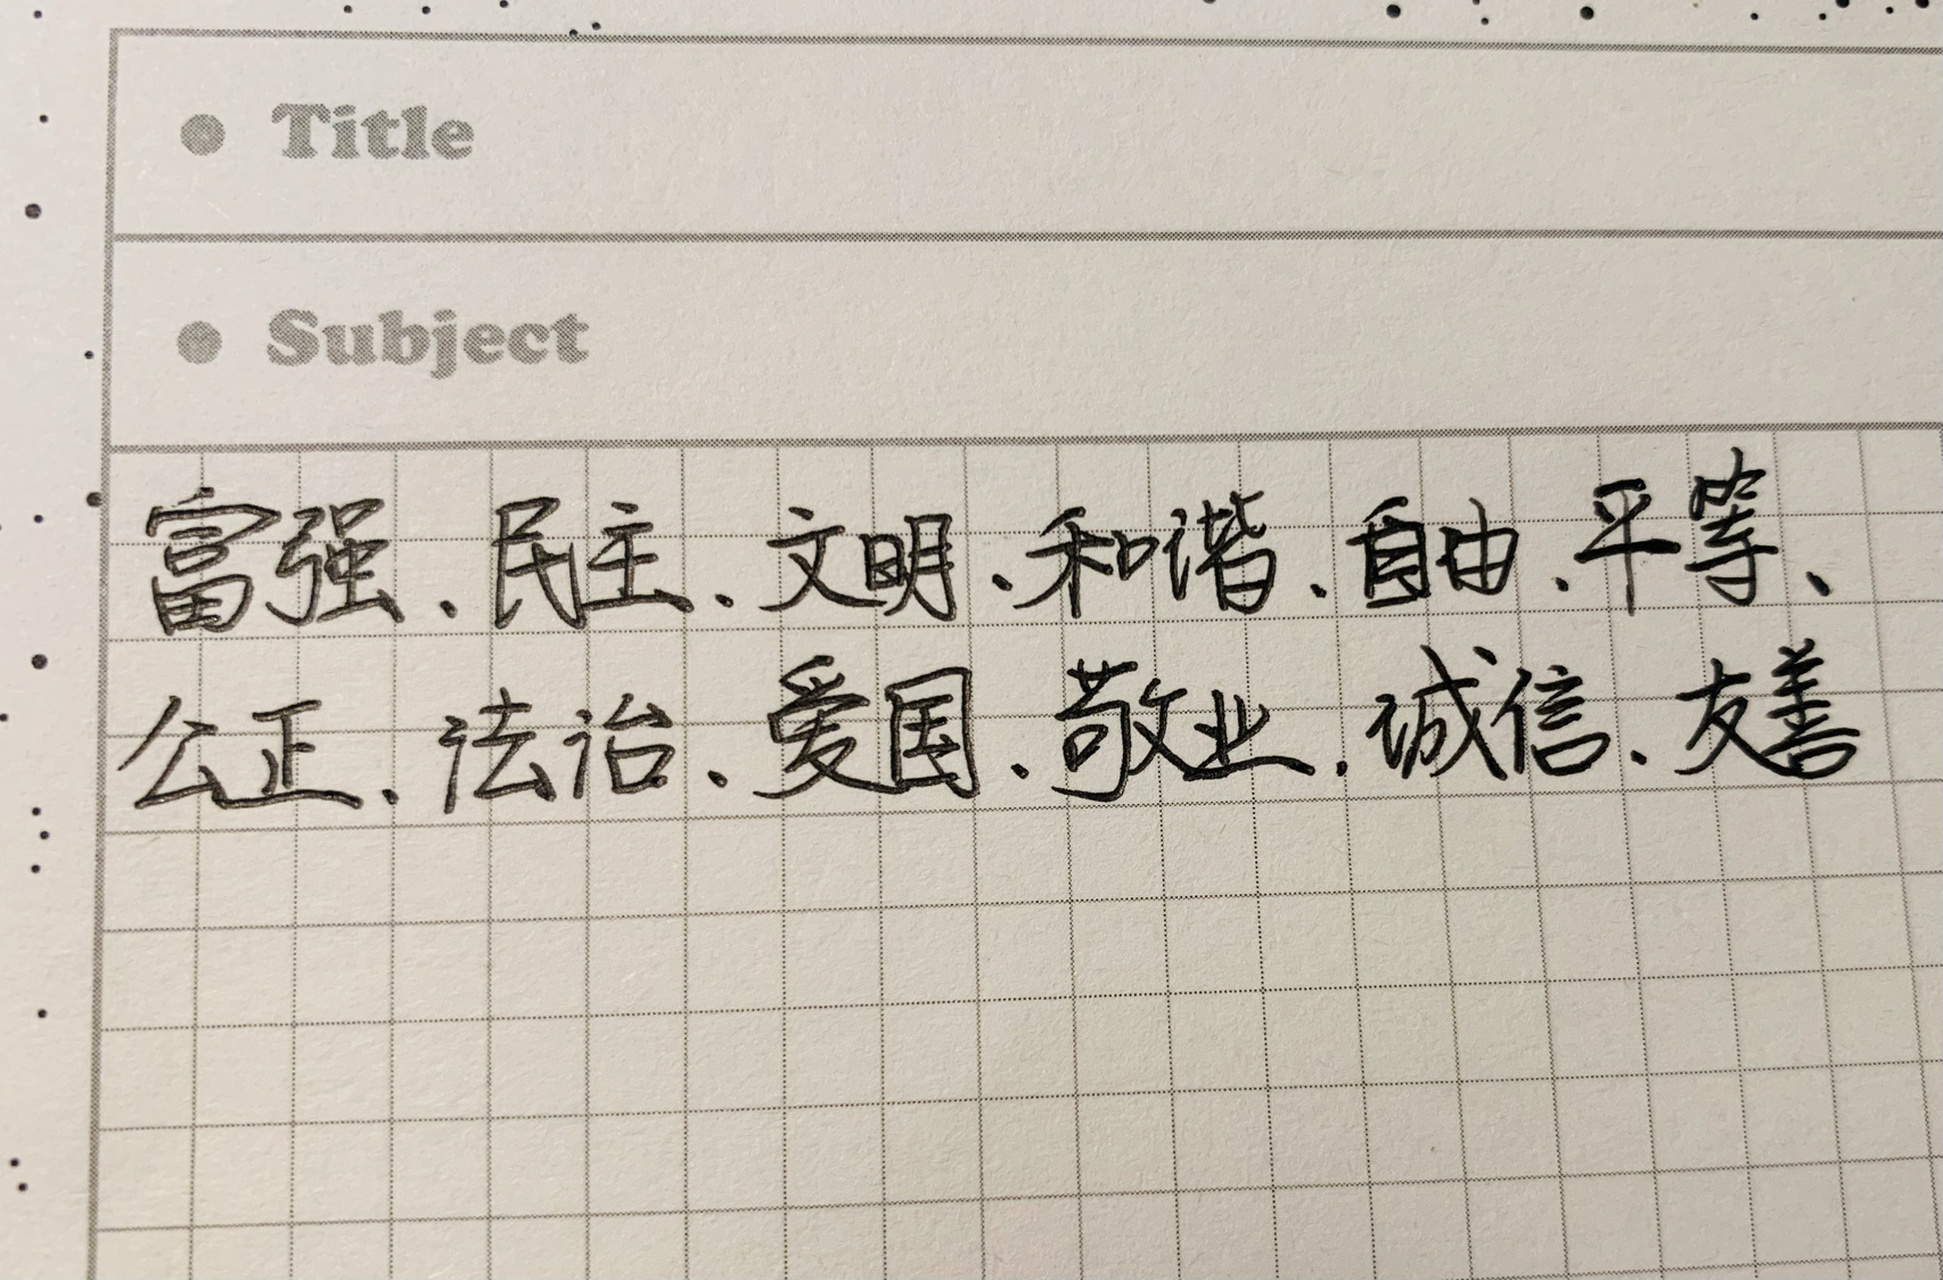 Title
Subject
富强、民主、文明、和谐、自由、平等、
公正、法治、爱国、敬业、诚信、友善